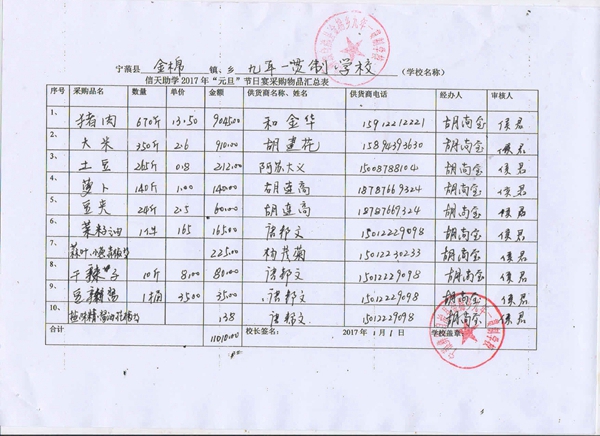 宁蒗县 金棉 镇、乡 九年一贯制学校 (学校名称)
信天助学2017年“元旦”节日宴采购物品汇总表
序号 采购品名 数量 单价 金额 供货商名称、姓名 供货商电话 经办人 审核人
1、 猪肉 670斤 13.50 9045.00 和金华 15912212221 胡尚全 侯君
2、 大米 350斤 2.6 910.00 胡建花 15894393630 胡尚全 侯君
3、 土豆 265斤 0.8 212.00 阿苏大义 15087881104 胡尚全 侯君
4、 萝卜 140斤 1.00 140.00 胡连高 18787669324 胡尚全 侯君
5、 豆夹 24斤 2.5 60.00 胡连高 18787669324 胡尚全 侯君
6、 菜籽油 1件 165 165.00 诸邦文 15012229098 胡尚全 侯君
7、 225.00 杨茂菊 15012230233 胡尚全 侯君
8、 干辣子 10斤 8.00 80.00 诸邦文 15012229098 胡尚全 侯君
9、 豆瓣酱 1桶 35.00 35.00 诸邦文 15012229098 胡尚全 侯君
10、 138 诸邦文 15012229098 胡尚全 侯君
合计 11010.00 校长签名: 2017年1月1日 学校盖章: